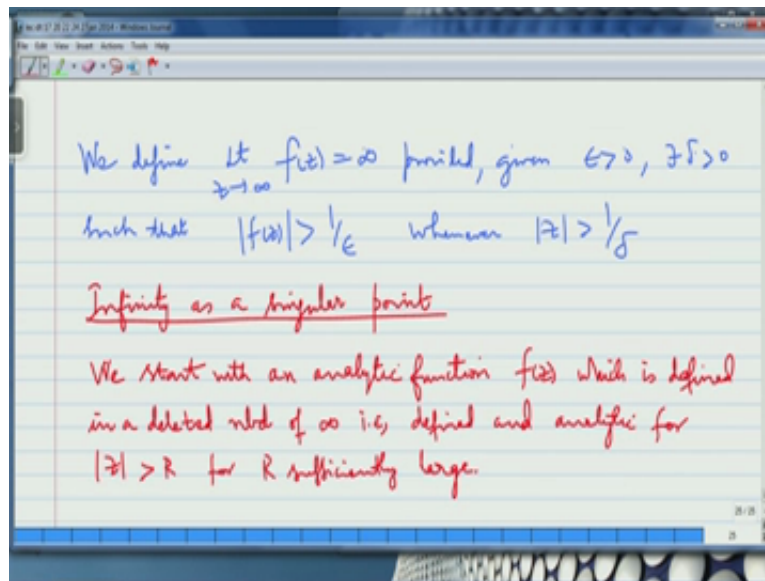 File Edit View Insert Actions Tools Help
We define Lt z→∞ f(z) = ∞ provided, given ϵ>0, ∃ δ>0
such that |f(z)| > 1/ϵ whenever |z| > 1/δ
Infinity as a singular point
We start with an analytic function f(z) which is defined
in a deleted nbd of ∞ i.e, defined and analytic for
|z| > R for R sufficiently large.
25 / 25
25